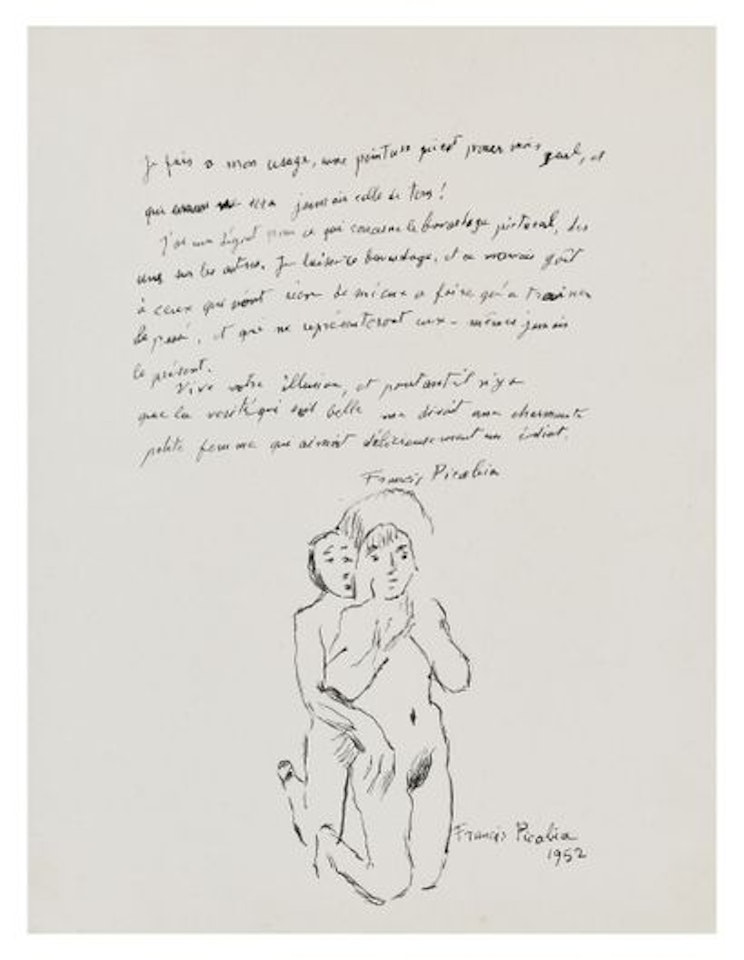 Je fais à mon usage, une peinture qui est pour moi seul, et
qui sera jamais celle de tous!
J'ai un dégout pour ce qui concerne le bavardage pictural, des
uns sur les autres. Je laisse ce bavardage, et ce mauvais goût
à ceux qui n'ont rien de mieux a faire qu'a trainer
le passé, et qui ne représenteront eux-mêmes jamais
le présent.
Vive votre illusion, et pourtant il n'y a
que la verité qui soit belle me disait une charmante
petite femme qui aimait délicieusement un idiot.
Francis Picabia
Francis Picabia
1952